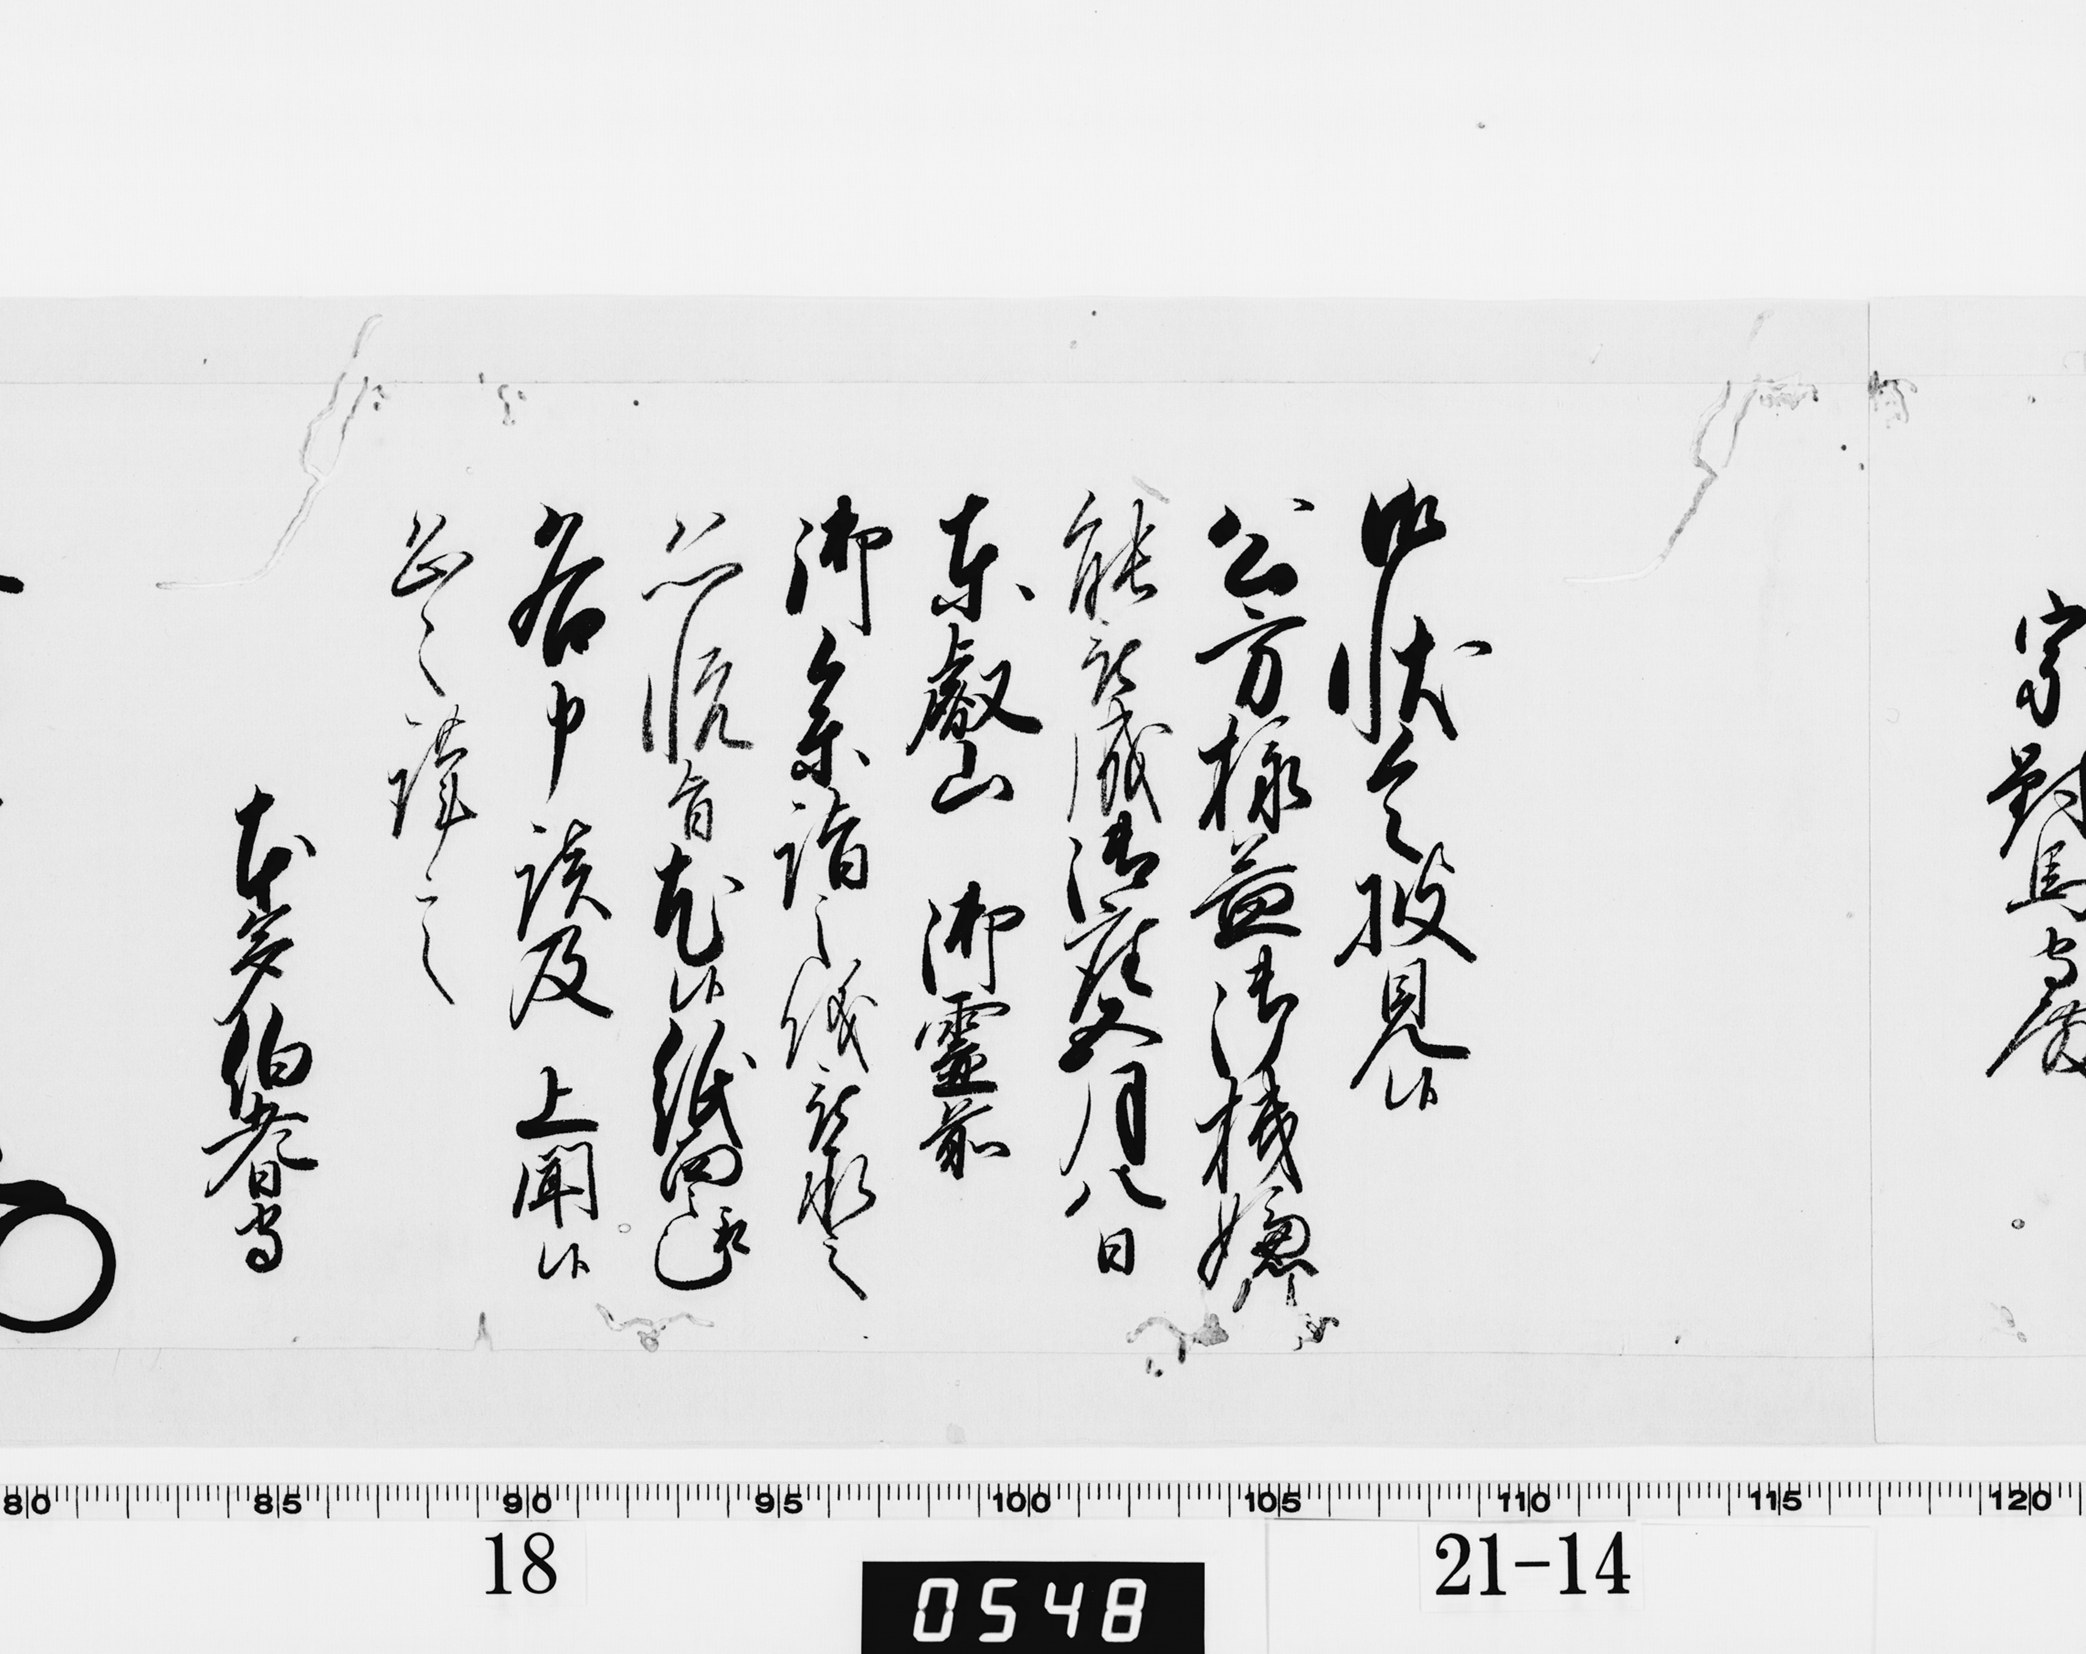 宗對馬守殿
御状令披見候
公方様益御機嫌
能被成御座五月八日
東叡山 御霊前
御参詣之儀被承之
恐悦旨尤候紙面之趣
各申談及 上聞候
恐々謹言
本多伯耆守
80 85 90 95 100 105 110 115 120
18
0548
21-14